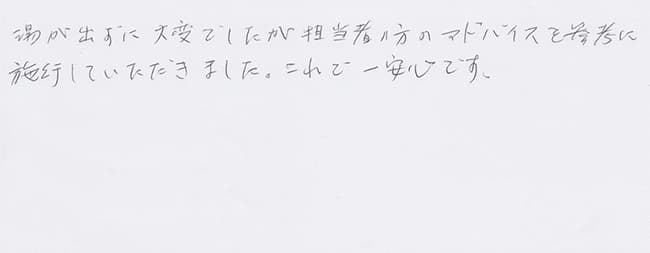 湯が出ずに大変でしたが担当者の方のアドバイスを参考に
施行していただきました。これで一安心です。